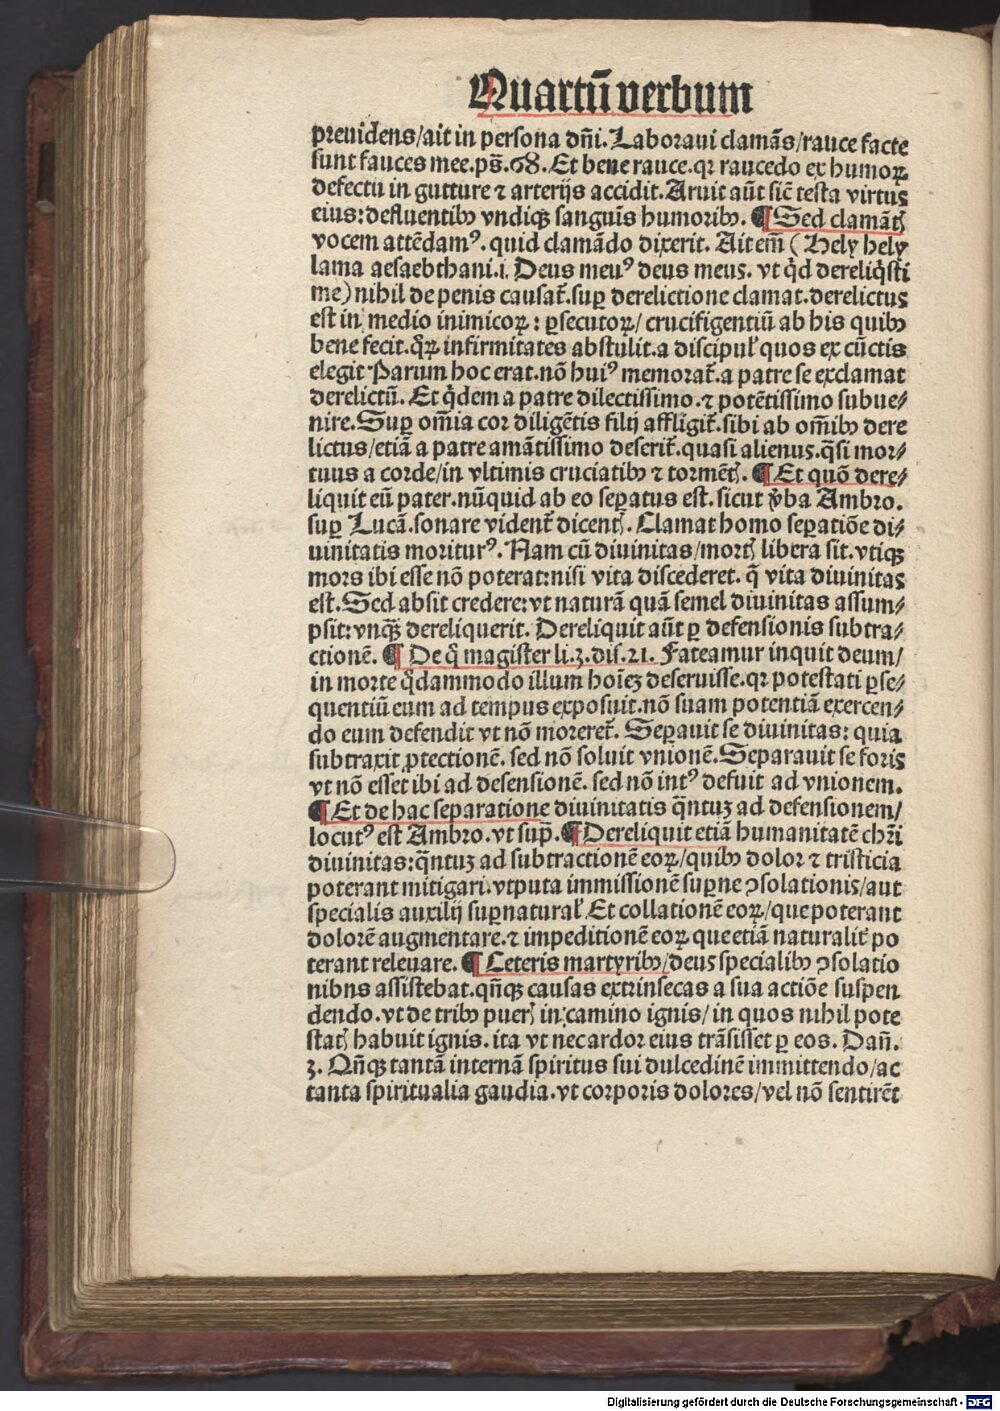 Quartū verbum
preuidens/ait in persona dñi. Laboraui clamãs/rauce facte
sunt fauces mee.ps̄.68. Et bene rauce.qꝛ raucedo ex humoꝝ
defectu in gutture ⁊ arterijs accidit. Aruit aūt sic̄ testa virtus
eius: defluentibꝰ vndiqꝫ sanguis humoribꝰ. ¶ Sed clamãtꝭ
vocem attēdamꝰ. quid clamãdo dixerit. Ait em̄ ( Hely hely
lama asaebthani.i. Deus meuꝰ deus meus. vt qͥd dereliqͥsti
me) nihil de penis causat̄. suꝑ derelictione clamat. derelictus
est in medio inimicoꝝ : ꝑsecutoꝝ/ crucifigentiū ab his quibꝰ
bene fecit. qͥꝝ infirmitates abstulit. a discipul' quos ex cūctis
elegit Parum hoc erat. nō huiꝰ memorat̄. a patre se exclamat
derelictū. Et qͥdem a patre dilectissimo. ⁊ potētissimo subue⸗
nire. Suꝑ om̄ia cor diligētis filij affligit̄. sibi ab om̄ibꝰ dere
lictus/etiã a patre amãtissimo deserit̄. quasi alienus. qͣsi mor⸗
tuus a corde/in vltimis cruciatibꝰ ⁊ tormētꝭ. ¶ Et quō dere⸗
liquit eū pater. nūquid ab eo seꝑatus est. sicut v̄ba Ambro.
suꝑ Lucã. sonare vident̄ dicentꝭ. Clamat homo seꝑatiōe di⸗
uinitatis moriturꝰ. Nam cū diuinitas/mortꝭ libera sit. vtiqꝫ
mors ibi esse nō poterat: nisi vita discederet. qͣ vita diuinitas
est. Sed absit credere: vt naturã quã semel diuinitas assum⸗
psit: vnqͣꝫ dereliquerit. Dereliquit aūt ꝑ defensionis subtra⸗
ctionē. ¶ De qͦ magister li.3.dis.21. Fateamur inquit deum/
in morte qͦdammodo illum hoīeꝫ deseruisse. qꝛ potestati ꝑse⸗
quentiū eum ad tempus exposuit. nō suam potentiã exercen⸗
do eum defendit vt nō moreret̄. Seꝑauit se diuinitas: quia
subtraxit ꝓtectionē. sed nō soluit vnionē. Separauit se foris
vt nō esset ibi ad defensionē. sed nō intꝰ defuit ad vnionem.
¶ Et de hac separatione diuinitatis qͣntuꝫ ad defensionem/
locutꝰ est Ambro. vt suꝑ. ¶ Dereliquit etiã humanitatē chr̄i
diuinitas: qͣntuꝫ ad subtractionē eoꝝ/quibꝰ dolor ⁊ tristicia
poterant mitigari. vtputa immissionē suꝑne ꝯsolationis/aut
specialis auxilij suꝑnatural' Et collationē eoꝝ/que poterant
dolorē augmentare. ⁊ impeditionē eoꝝ que etiã naturalit̄ po
terant releuare. ¶ Ceteris martyribꝰ/deus specialibꝰ ꝯsolatio
nibns assistebat. qn̄qꝫ causas extrinsecas a sua actiōe suspen
dendo. vt de tribꝰ puerꝭ in camino ignis/ in quos nihil pote
statꝭ habuit ignis. ita vt nec ardor eius trãsisset ꝑ eos. Dañ.
3. Qn̄qꝫ tantã internã spiritus sui dulcedinē immittendo/ac
tanta spiritualia gaudia. vt corporis dolores/vel nō sentirēt
Digitalisierung gefördert durch die Deutsche Forschungsgemeinschaft - DFG